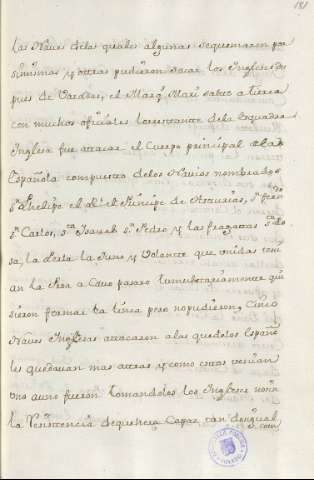 181
las Naves delas quales algunas se quemaron por
si mismas y otras pudieron sacar los Ingleses des
pues de Varadas, el Marq.s Mari salto a tierra
con muchos oficiales lo restante dela Esquadra
Inglesa fue atacar el Cuerpo principal dela
Española compuerta delos Navios nombrados
S.n Phelipe el R.l el Principe de Asturias, S.n Fern.do
S.n Carlos, S.ta Isavel S.n Pedro y las fragatas S.ta Ro
sa, la Perla la Juno y Volante que unidas tení
an la Proa a Cavo pasaro tumultuariamente qui
sieron formar la linea pero no pudieron, Cinco
Naves Inglesas attacaron alas quedelos Españo
les quedavan mas atras y como estas venian
Uno a uno fueron tomandolos los Ingleses no
la Resistencia de que hera Capaz tan desigual